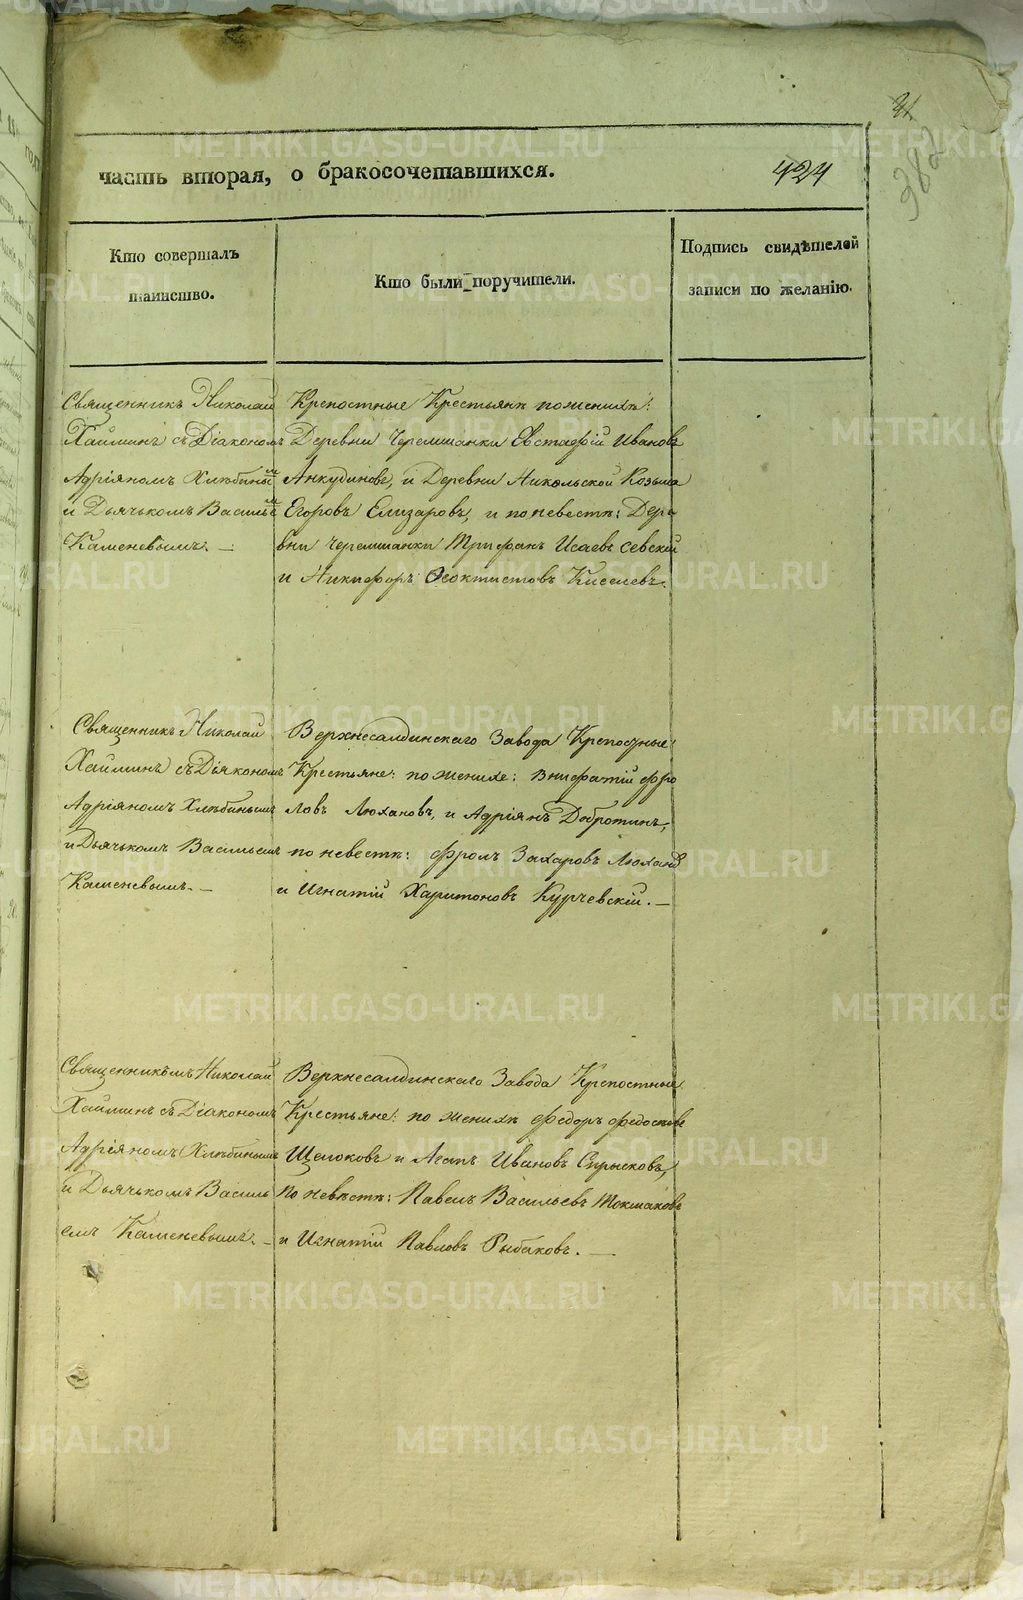 424
382
часть вторая, о бракосочетавшихся.
Кто совершалъ
таинство.
Кто были поручители.
Подпись свидѣтелей
записи по желанію.
Священникъ Николай
Хайминъ съ Діакономъ
Адріяномъ Хлѣбинымъ
и Дьячькомъ Васильемъ
Каменевымъ. —
Крепостные Крестьянѣ по женихѣ:
Деревни Черемшанки Евстафій Ивановъ
Анкудиновъ, и Деревни Никольской Козьма
Егоровъ Елизаровъ, и по невестѣ: Дере
вни Черемшанки Трифанъ Исаевъ Севскій
и Никифоръ Ѳеоктистовъ Киселевъ.
Священникъ Николай
Хайминъ съ Діякономъ
Адріяномъ Хлѣбинымъ
и Дьячькомъ Васильемъ
Каменевымъ. —
Верхнесалдинскаго Завода Крепостные
Крестьяне: по женихе: Внифатій Фро
ловъ Люхановъ, и Адріянъ Добротинъ,
по невестѣ: Фролъ Захаровъ Люханов
и Игнатій Харитоновъ Курчевскій. —
Священникомъ Николай
Хайминъ съ Діакономъ
Адріяномъ Хлѣбинымъ
и Дьячькомъ Василь
емъ Каменевымъ. —
Верхнесалдинскаго Завода Крепостные
Крестьяне: по женихѣ Федоръ Федосѣеве
Щелоковъ и Агапъ Ивановъ Спрысковъ,
по невѣстѣ: Павелъ Васильевъ Токмаковъ
и Игнатій Павловъ Рыбаковъ. —
METRIKI.GASO-URAL.RU